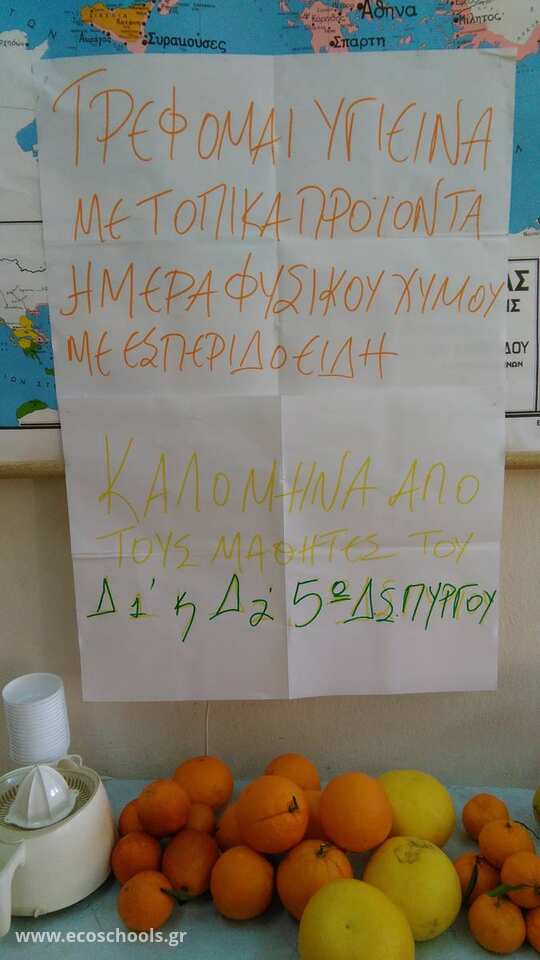 Αθήνα
Συρακούσες
Σπάρτη
Μίλητος
ΤΡΕΦΟΜΑΙ ΥΓΙΕΙΝΑ
ΜΕ ΤΟΠΙΚΑ ΠΡΟΪΟΝΤΑ
ΗΜΕΡΑ ΦΥΣΙΚΟΥ ΧΥΜΟΥ
ΜΕ ΕΣΠΕΡΙΔΟΕΙΔΗ
ΚΑΛΟ ΜΗΝΑ ΑΠΟ
ΤΟΥΣ ΜΑΘΗΤΕΣ ΤΟΥ
Δ1' κ Δ2' 5ο ΔΣ ΠΥΡΓΟΥ
www.ecoschools.gr